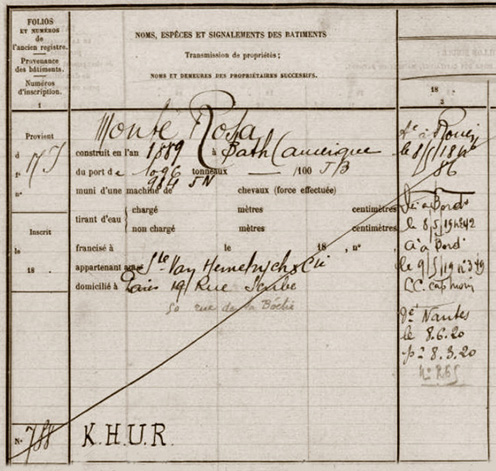 FOLIOS
ET NUMÉROS
de
l'ancien registre.
Provenance
des bâtiments.
Numéros
d'inscription.
1
NOMS, ESPÈCES ET SIGNALEMENTS DES BATIMENTS
Transmission de propriétés;
NOMS ET DEMEURES DES PROPRIÉTAIRES SUCCESSIFS.
18
2
Provient
d
n°
Inscrit
18
N° 788
Monte Rosa
construit en l'an 1889 à Bath (Amérique
du port de 1096 tonneaux /100 JB
984 JN
muni d'une machine de chevaux (force effectuée)
tirant d'eau
chargé mètres centimètres
non chargé mètres centimètres
francisé à le 18 , n°
appartenant au
domicilié à Paris 19 Rue Scribe
50 rue de la Boëtie
K.H.U.R.
à Rouen
le 8/5/19
86
à Bord
le 8/5/19 n° 42
à Bord
le 9/5/19 n° 349
Nantes
le 8.6.20
8.3.20